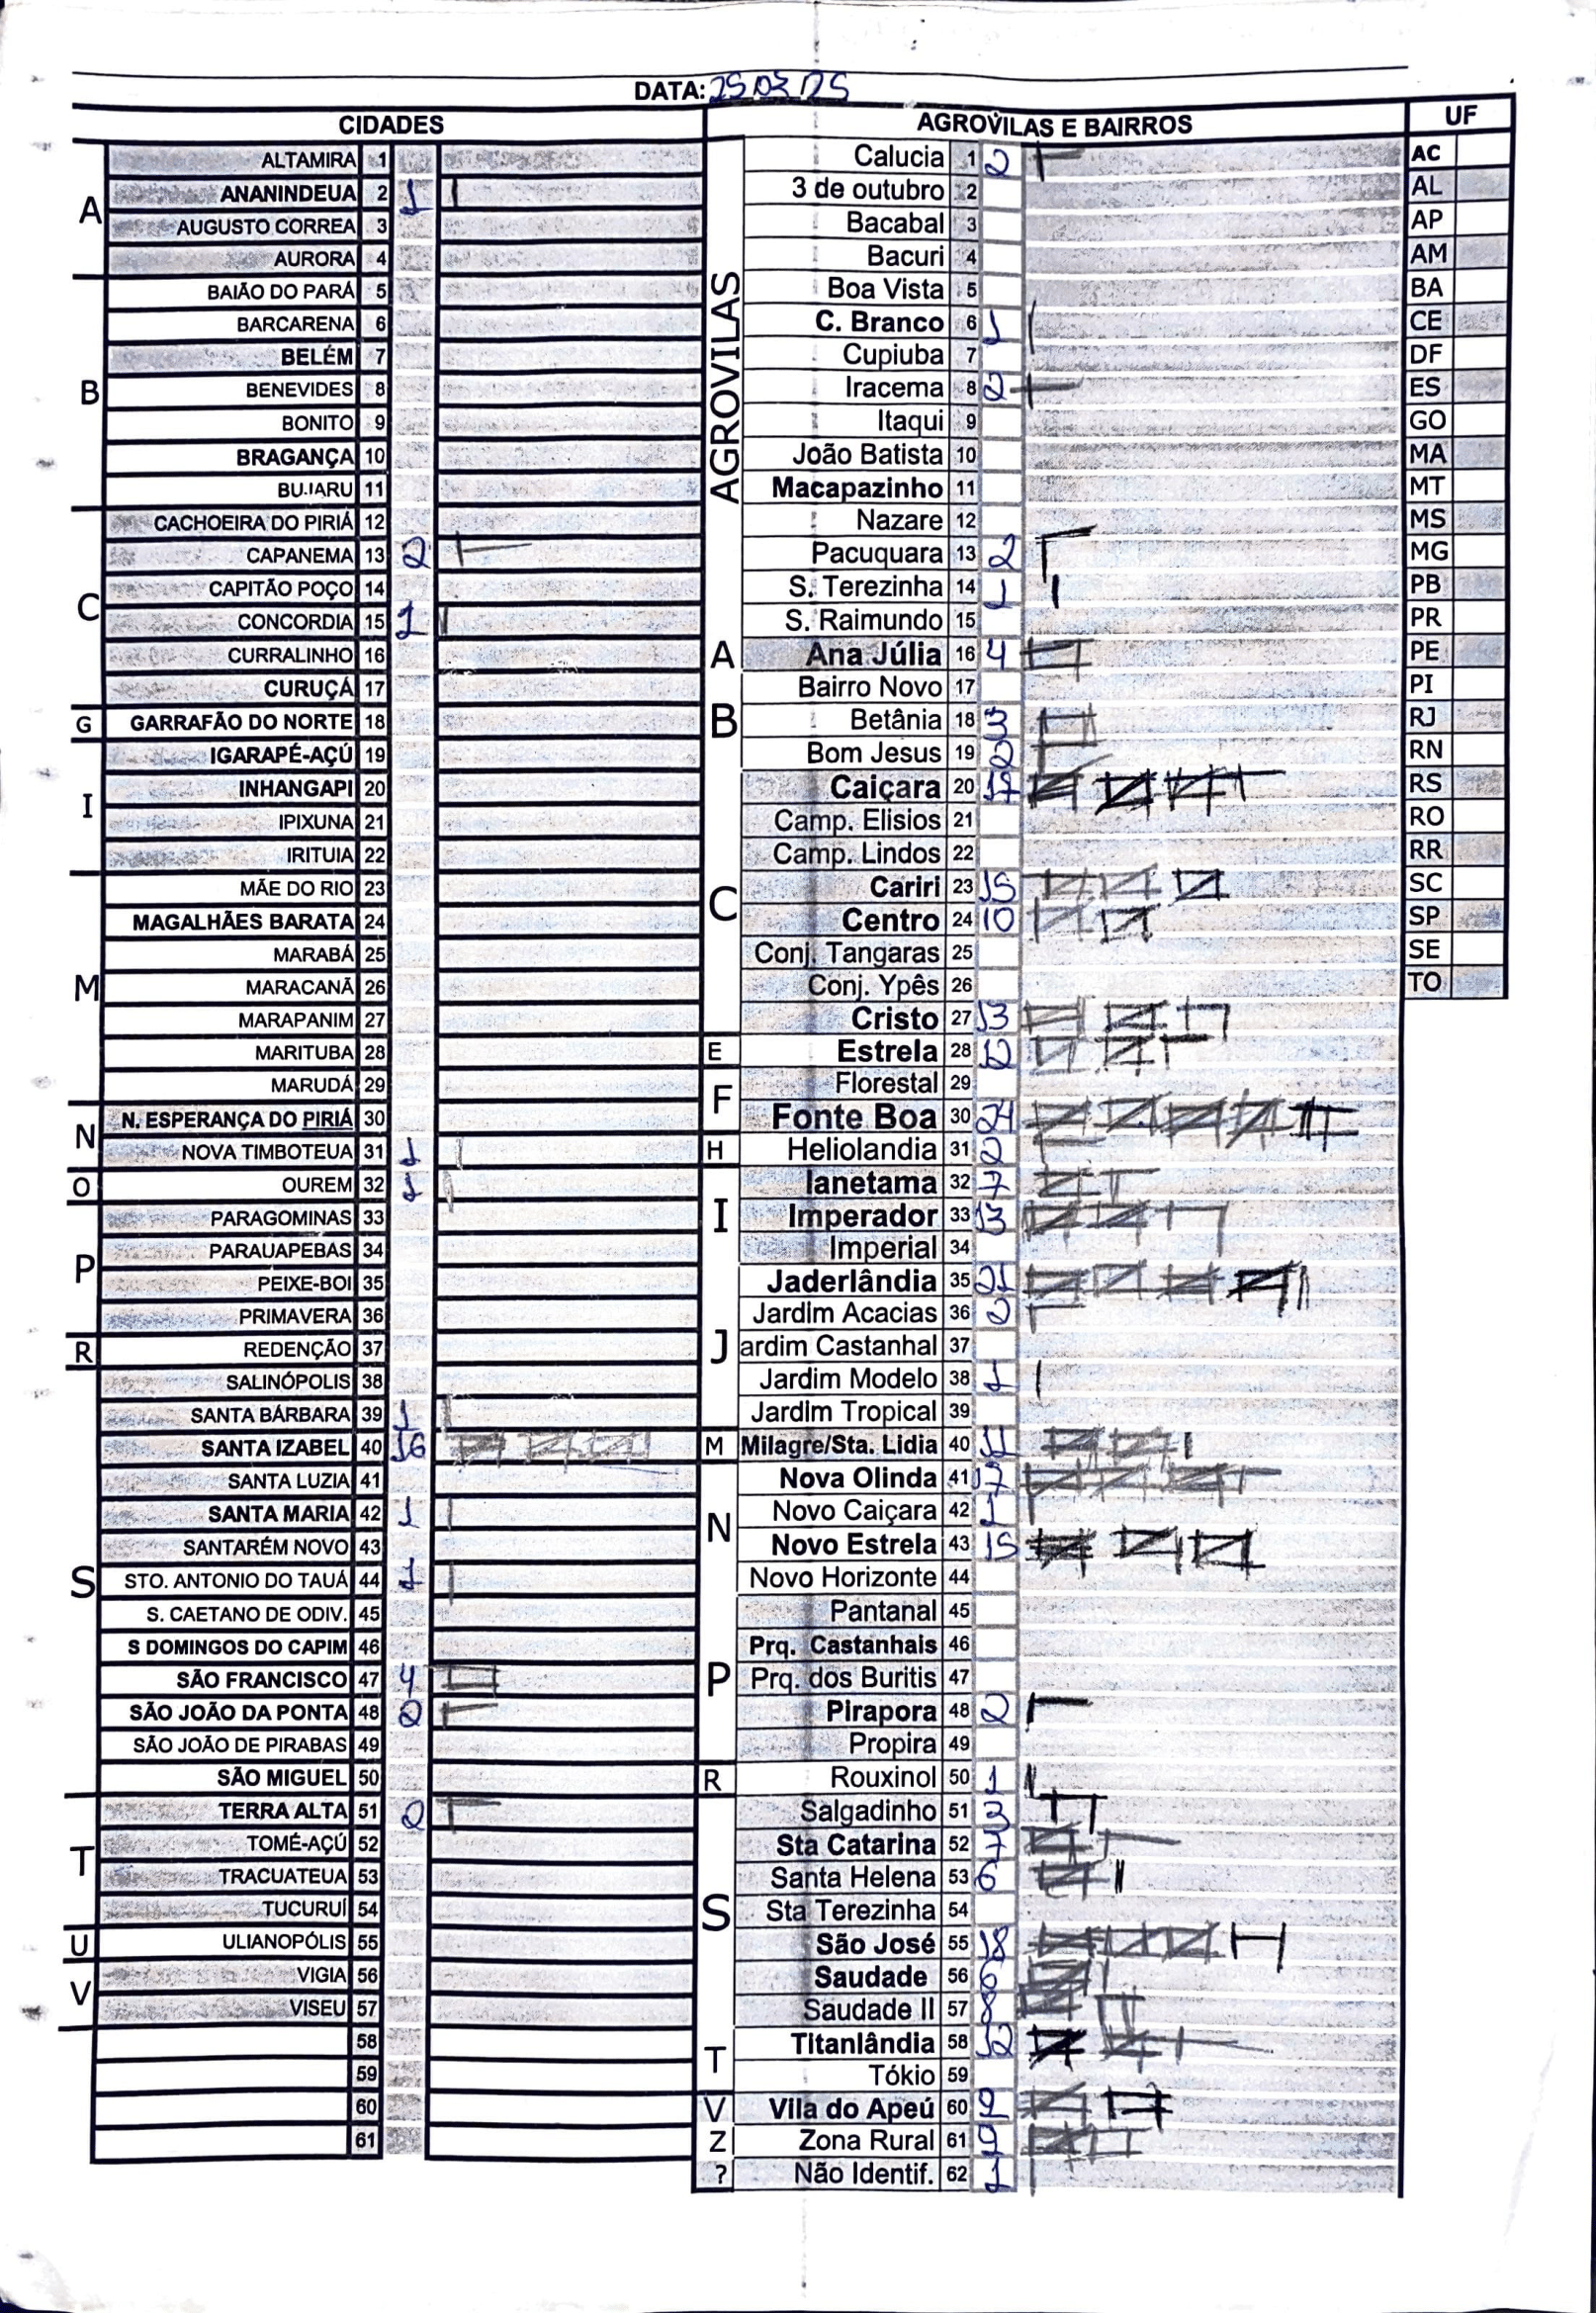 DATA: 25.03.25
CIDADES
A
ALTAMIRA 1
ANANINDEUA 2 1
AUGUSTO CORREA 3
AURORA 4
B
BAIÃO DO PARÁ 5
BARCARENA 6
BELÉM 7
BENEVIDES 8
BONITO 9
BRAGANÇA 10
BUJARU 11
C
CACHOEIRA DO PIRIÁ 12
CAPANEMA 13 2
CAPITÃO POÇO 14
CONCORDIA 15 1
CURRALINHO 16
CURUÇÁ 17
G
GARRAFÃO DO NORTE 18
I
IGARAPÉ-AÇÚ 19
INHANGAPI 20
IPIXUNA 21
IRITUIA 22
M
MÃE DO RIO 23
MAGALHÃES BARATA 24
MARABÁ 25
MARACANÃ 26
MARAPANIM 27
MARITUBA 28
MARUDÁ 29
N
N. ESPERANÇA DO PIRIÁ 30
NOVA TIMBOTEUA 31 1
O
OUREM 32 1
P
PARAGOMINAS 33
PARAUAPEBAS 34
PEIXE-BOI 35
PRIMAVERA 36
R
REDENÇÃO 37
S
SALINÓPOLIS 38
SANTA BÁRBARA 39 1
SANTA IZABEL 40 16
SANTA LUZIA 41
SANTA MARIA 42 1
SANTARÉM NOVO 43
STO. ANTONIO DO TAUÁ 44 1
S. CAETANO DE ODIV. 45
S DOMINGOS DO CAPIM 46
SÃO FRANCISCO 47 4
SÃO JOÃO DA PONTA 48 2
SÃO JOÃO DE PIRABAS 49
SÃO MIGUEL 50
T
TERRA ALTA 51 2
TOMÉ-AÇÚ 52
TRACUATEUA 53
TUCURUÍ 54
U
ULIANOPÓLIS 55
V
VIGIA 56
VISEU 57
58
59
60
61
AGROVILAS E BAIRROS
AGROVILAS
Calucia 1 2
3 de outubro 2
Bacabal 3
Bacuri 4
Boa Vista 5
C. Branco 6 1
Cupiuba 7
Iracema 8 2
Itaqui 9
João Batista 10
Macapazinho 11
Nazare 12
Pacuquara 13 2
S. Terezinha 14 1
S. Raimundo 15
A
Ana Júlia 16 4
B
Bairro Novo 17
Betânia 18 3
Bom Jesus 19 2
C
Caiçara 20 17
Camp. Elisios 21
Camp. Lindos 22
Cariri 23 15
Centro 24 10
Conj. Tangaras 25
Conj. Ypês 26
Cristo 27 13
E
Estrela 28 12
F
Florestal 29
Fonte Boa 30 24
H
Heliolandia 31 2
I
Ianetama 32 7
Imperador 33 13
Imperial 34
J
Jaderlândia 35 21
Jardim Acacias 36 2
ardim Castanhal 37
Jardim Modelo 38 1
Jardim Tropical 39
M
Milagre/Sta. Lidia 40 11
N
Nova Olinda 41 17
Novo Caiçara 42 1
Novo Estrela 43 15
Novo Horizonte 44
P
Pantanal 45
Prq. Castanhais 46
Prq. dos Buritis 47
Pirapora 48 2
Propira 49
R
Rouxinol 50 1
S
Salgadinho 51 3
Sta Catarina 52 7
Santa Helena 53 6
Sta Terezinha 54
São José 55 18
Saudade 56 6
Saudade II 57 8
T
Titanlândia 58 12
Tókio 59
V
Vila do Apeú 60 9
Z
Zona Rural 61 9
?
Não Identif. 62 1
UF
AC
AL
AP
AM
BA
CE
DF
ES
GO
MA
MT
MS
MG
PB
PR
PE
PI
RJ
RN
RS
RO
RR
SC
SP
SE
TO